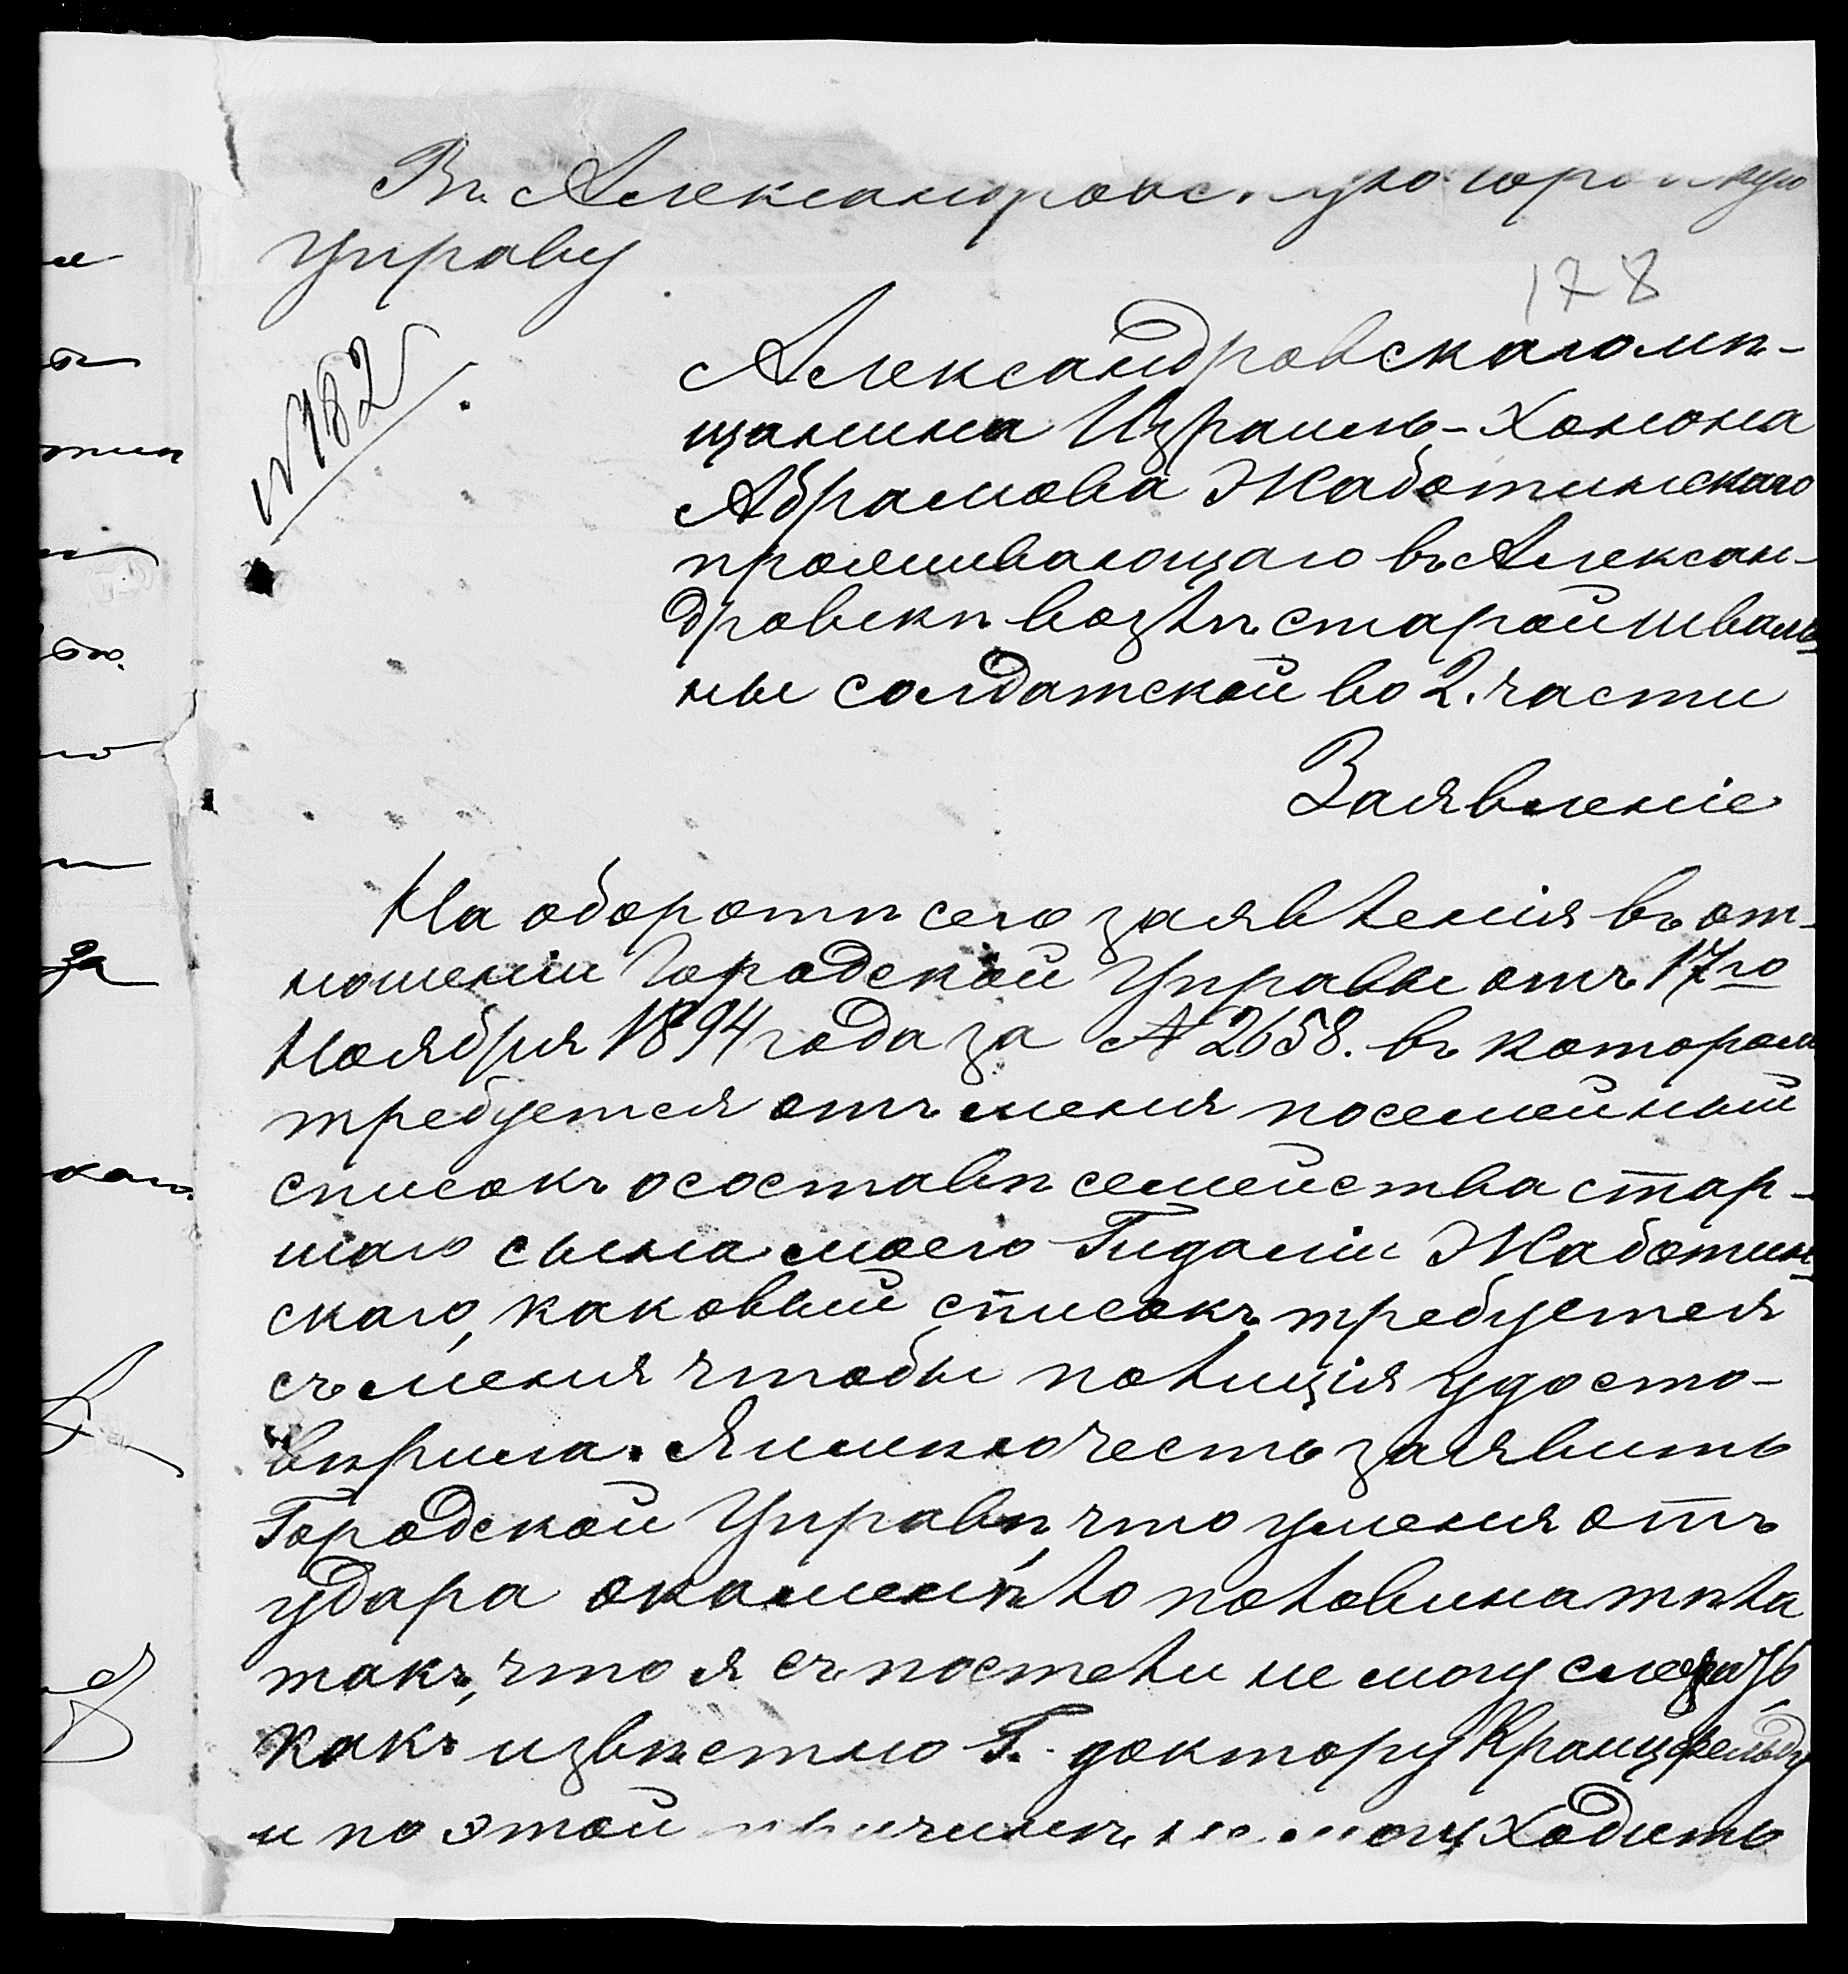 Въ Александровскую городскую
Управу
178
№ 182
Александровскаго мѣ-
щанина Израиль-Хонона
Абрамова Жаботинскаго
проживающаго въ Алексан-
дровскѣ возлѣ старой шваль-
ны солдатской во 2. части
Заявленіе
На оборотѣ сего заявленія въ от-
ношеніи Городской Управы отъ 17го
Ноября 1894 года за № 2658. въ котором
требуется отъ меня посемейный
списокъ о составѣ семейства стар-
шаго сына моего Гидаліи Жаботин-
скаго, каковый списокъ требуется
съ меня чтобы полиція удосто-
вѣрила. Я имѣю честь заявить
Городской Управѣ, что у меня отъ
удара окаменѣло половина тѣла
такъ, что я съ постели не могу слезать
какъ извѣстно Г. доктору Кранцфельду
и по этой причинѣ не могу ходить
за